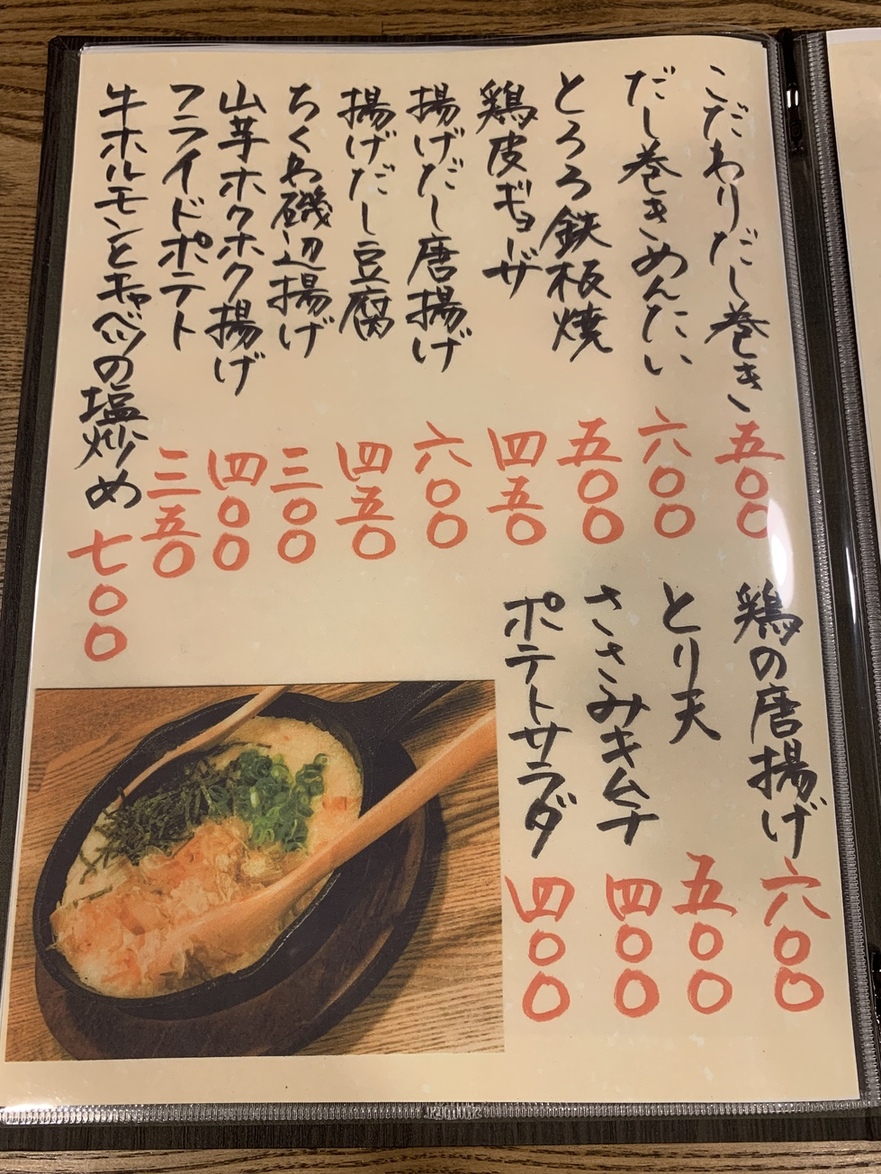 こだわりだし巻き 五〇〇
だし巻きめんたい 六〇〇
とろろ鉄板焼 五〇〇
鶏皮ギョーザ 四五〇
揚げだし唐揚げ 六〇〇
揚げだし豆腐 四五〇
ちくわ磯辺揚げ 三〇〇
山芋ホクホク揚げ 四〇〇
フライドポテト 三五〇
牛ホルモンとキャベツの塩炒め 七〇〇
鶏の唐揚げ 六〇〇
とり天 五〇〇
ささみキムチ 四〇〇
ポテトサラダ 四〇〇